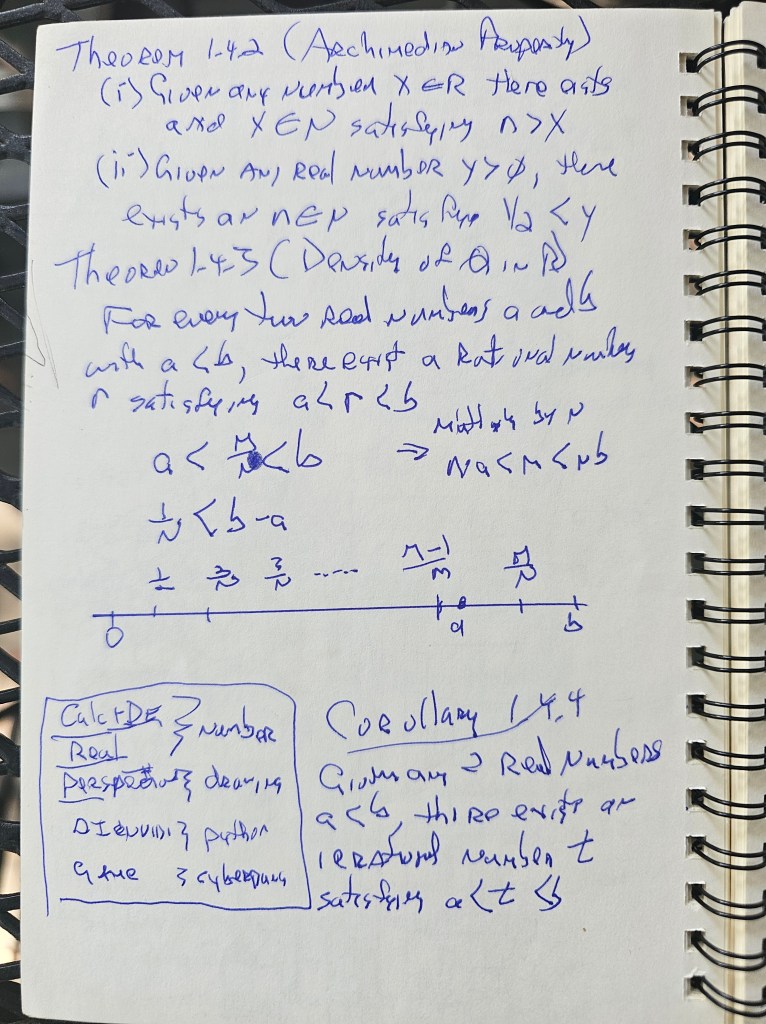 Theorem 1.4.2 (Archimedian Property)
(i) Given any number x ∈ R there exists
and x ∈ N satisfying n > x
(ii) Given any real number y > 0, there
exists an n ∈ N satisfying 1/2 < y
Theorem 1.4.3 (Density of Q in R)
For every two real numbers a and b
with a < b, there exist a rational number
r satisfying a < r < b
a < M/N < b ⇒ Multiply by N
Na < M < Nb
1/N < b - a
1/ 2/N 3/N ..... M-1/m M/N
0 a b
Calc+DE } number
Real
Perspective } drawing
} python
Game } cyberpunk
Corollary 1.4.4
Given any 2 Real Numbers
a < b, there exists an
irrational number t
satisfying a < t < b